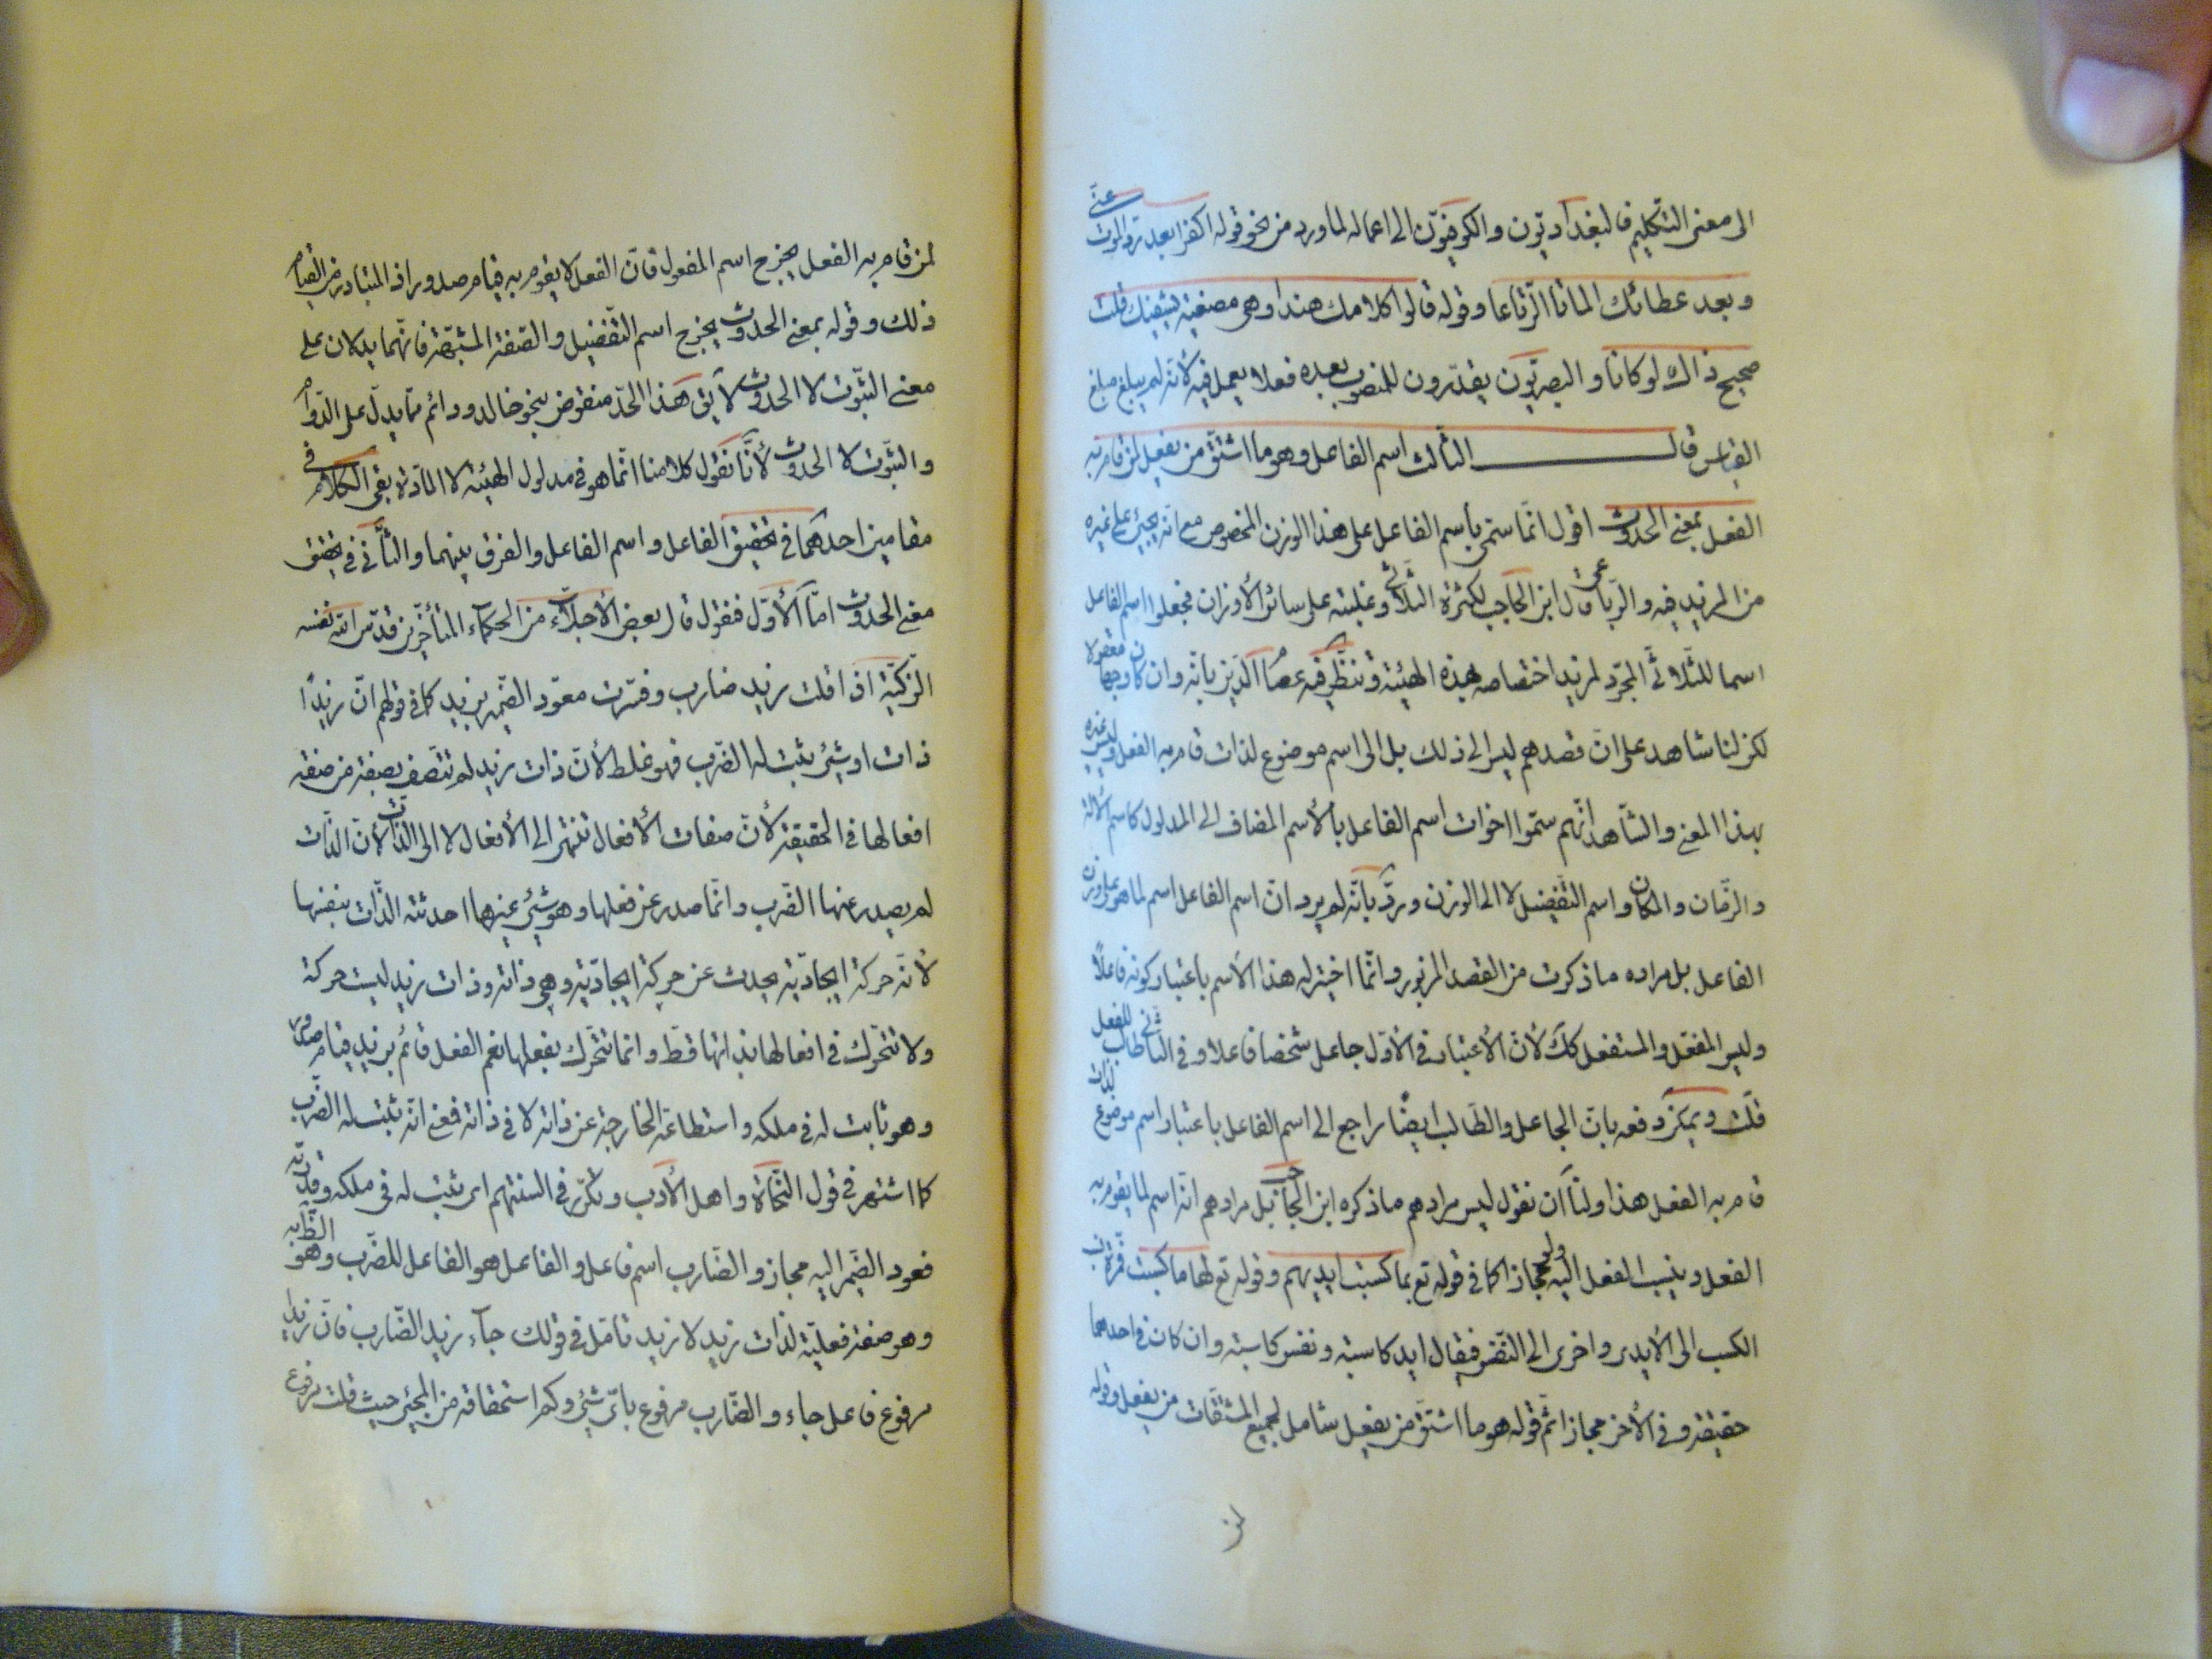 الى معنى التكليم فالبغداديّون والكوفيّون الى اعماله لما ورد من نحو قوله اكفرا بعد ردّ الموت عنّى
وبعد عطائك المائة الرّتاعا وقوله قالوا كلامك هندا وهى مصغية يشفيك قلت
صحيح ذاك لو كانا والبصريّون يقدّرون للمنصوب بعده فعلا يعمل فيه لأنّه لم يبلغ مبلغ
القياس قال الثّالث اسم الفاعل وهو ما اشتقّ من يفعل لمن قام به
الفعل بمعنى الحدوث اقول انّما سمّى باسم الفاعل على هذا الوزن المخصوص مع انّه يجيئ على غيره
من المزيد فيه والرّباعى قال ابن الحاجب لكثرة الثّلاثى وغلبته على سائر الأوزان فجعلوا اسم الفاعل
اسما للثّلاثى المجرّد لمزيد اختصاصه بهذه الهيئة وتنظّر فيه عصام الدّين بأنّه وان كان وجها مقبولا
لكن لنا شاهد على انّ قصدهم ليس الى ذلك بل الى اسم موضوع لذات قام به الفعل وليس غيره
بهذا المعنى والشّاهد انّهم سمّوا اخوات اسم الفاعل بالأسم المضاف الى المدلول كاسم الآلة
والزّمان والمكان واسم التّفضيل لا الى الوزن وردّ بأنّه لم يرد انّ اسم الفاعل اسم لما هو على وزن
الفاعل بل مراده ما ذكرت من القصد المزبور وانّما اختير له هذا الأسم باعتبار كونه فاعلًا
وليس المفعّل والمستفعل كك لأنّ الأعتبار فى الأوّل جاعل شخصا فاعلا وفى الثّانى طالب للفعل
قلت ويمكن دفعه بانّ الجاعل والطّالب ايضًا راجع الى اسم الفاعل باعتبار اسم موضوع لذات
قام به الفعل هذا ولنا ان نقول ليس مرادهم ما ذكره ابن الحاجب بل مرادهم انّه اسم لما يقوم به
الفعل وينسب الفعل اليه ولو مجازا كما فى قوله تع بما كسبت ايديهم وقوله تع لها ما كسبت فمرّة نسب
الكسب الى الأيدى واخرى الى النّفس فيقال ايد كاسبة ونفس كاسبة وان كان فى احدهما
حقيقة وفى الأخر مجازا ثم قوله هو ما اشتقّ من يفعل شامل لجميع المشتقّات من يفعل وقوله
لمن
لمن قام به الفعل يخرج اسم المفعول فانّ الفعل لا يقوم به قيام صدور اذ المتبادر من القيام
ذلك وقوله بمعنى الحدوث يخرج اسم التّفضيل والصّفة المشبّهة فانّهما يدلان على
معنى الثّبوت لا الحدوث لا يق هذا الحدّ منقوض بنحو خالد ودائم ممّا يدلّ على الدّوام
والثّبوت لا الحدوث لأنّا نقول كلامنا انّما هو فى مدلول الهيئة لا المادّة بقى الكلام فى
مقامين احدهما فى تحقيق الفاعل واسم الفاعل والفرق بينهما والثّانى فى تحقيق
معنى الحدوث امّا الأوّل فنقول قال بعض الأجلاّء من الحكماء المتأخّرين قدّس الله نفسه
الزّكيّة اذا قلت زيد ضارب وفسّرت معوّد الضّمير بزيد كما فى قولهم انّ زيدًا
ذات او شيئ يثبت له الضّرب فهو غلط لأنّ ذات زيد لم تتّصف بصفة من صفة
افعالها فى الحقيقة لأنّ صفات الأفعال تنتهى الى الأفعال لا الى الذّات لأنّ الذّات
لم يصدر عنها الضّرب وانّما صدر عن فعلها وهو شيئ غيرها احدثته الذّات بنفسها
لأنّه حركة ايجاديّة يحدث عن حركة ايجاديّة وهى ذاته وذات زيد ليست حركة
ولا تتحرّك فى افعالها بذاتها قطّ وانما تتحرّك بفعلها نعم الفعل قائم بزيد قيام صدور
وهو ثابت له فى ملكه واستطاعته الخارجة عن ذاته لا فى ذاته فمعنى انّه يثبت له الضّرب
كما اشتهر فى قول النّحاة واهل الأدب وتكرّر فى السنتهم اى يثبت له فى ملكه وقدرته
فعود الضّمير اليه مجاز والضّارب اسم فاعل والفاعل هو الفاعل للضّرب وهو
وهو صفة فعليّة لذات زيد لا زيد تامّل فى قولك جآء زيد الضّارب فانّ زيدا
مرفوع فاعل جاء والضّارب مرفوع باىّ شيئ وكم استحقاقه من المجيئ حيث قلت مرفوع